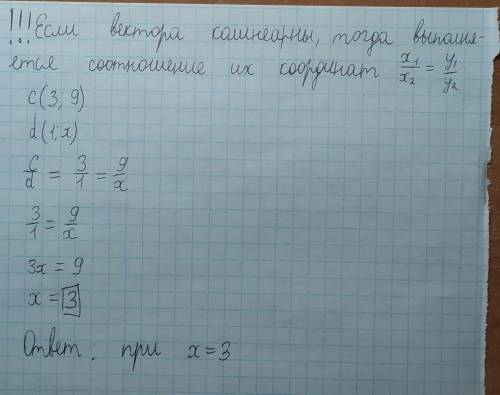 !!! Если вектора коллинеарны, тогда выполня-
ется соотношение их координат x₁/x₂ = y₁/y₂
c(3; 9)
d(1; x)
c/d = 3/1 = 9/x
3/1 = 9/x
3x = 9
x = 3
Ответ: при x = 3